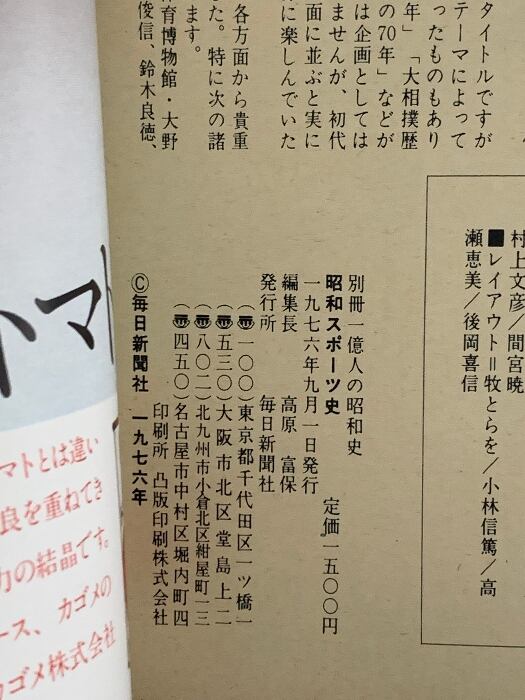 タイトルですが
テーマによって
ったものもあり
年」「大相撲歴
の70年」などが
は企画としては
ませんが、初代
面に並ぶと実に
に楽しんでいた
各方面から貴重
た。特に次の諸
ます。
体育博物館・大野
俊信、鈴木良徳、
村上文彦／間宮暁
■レイアウト＝牧とらを／小林信篤／高
瀬恵美／後岡喜信
別冊一億人の昭和史
昭和スポーツ史
定価一五〇〇円
一九七六年九月一日発行
編集長　高原　富保
発行所　毎日新聞社
（〠一〇〇）東京都千代田区一ツ橋一
（〠五三〇）大阪市北区堂島上二
（〠八〇二）北九州市小倉北区紺屋町一三
（〠四五〇）名古屋市中村区堀内町四
印刷所　凸版印刷株式会社
©毎日新聞社　一九七六年
トマト
マトとは違い
良を重ねてき
力の結晶です。
ース、カゴメの
カゴメ株式会社